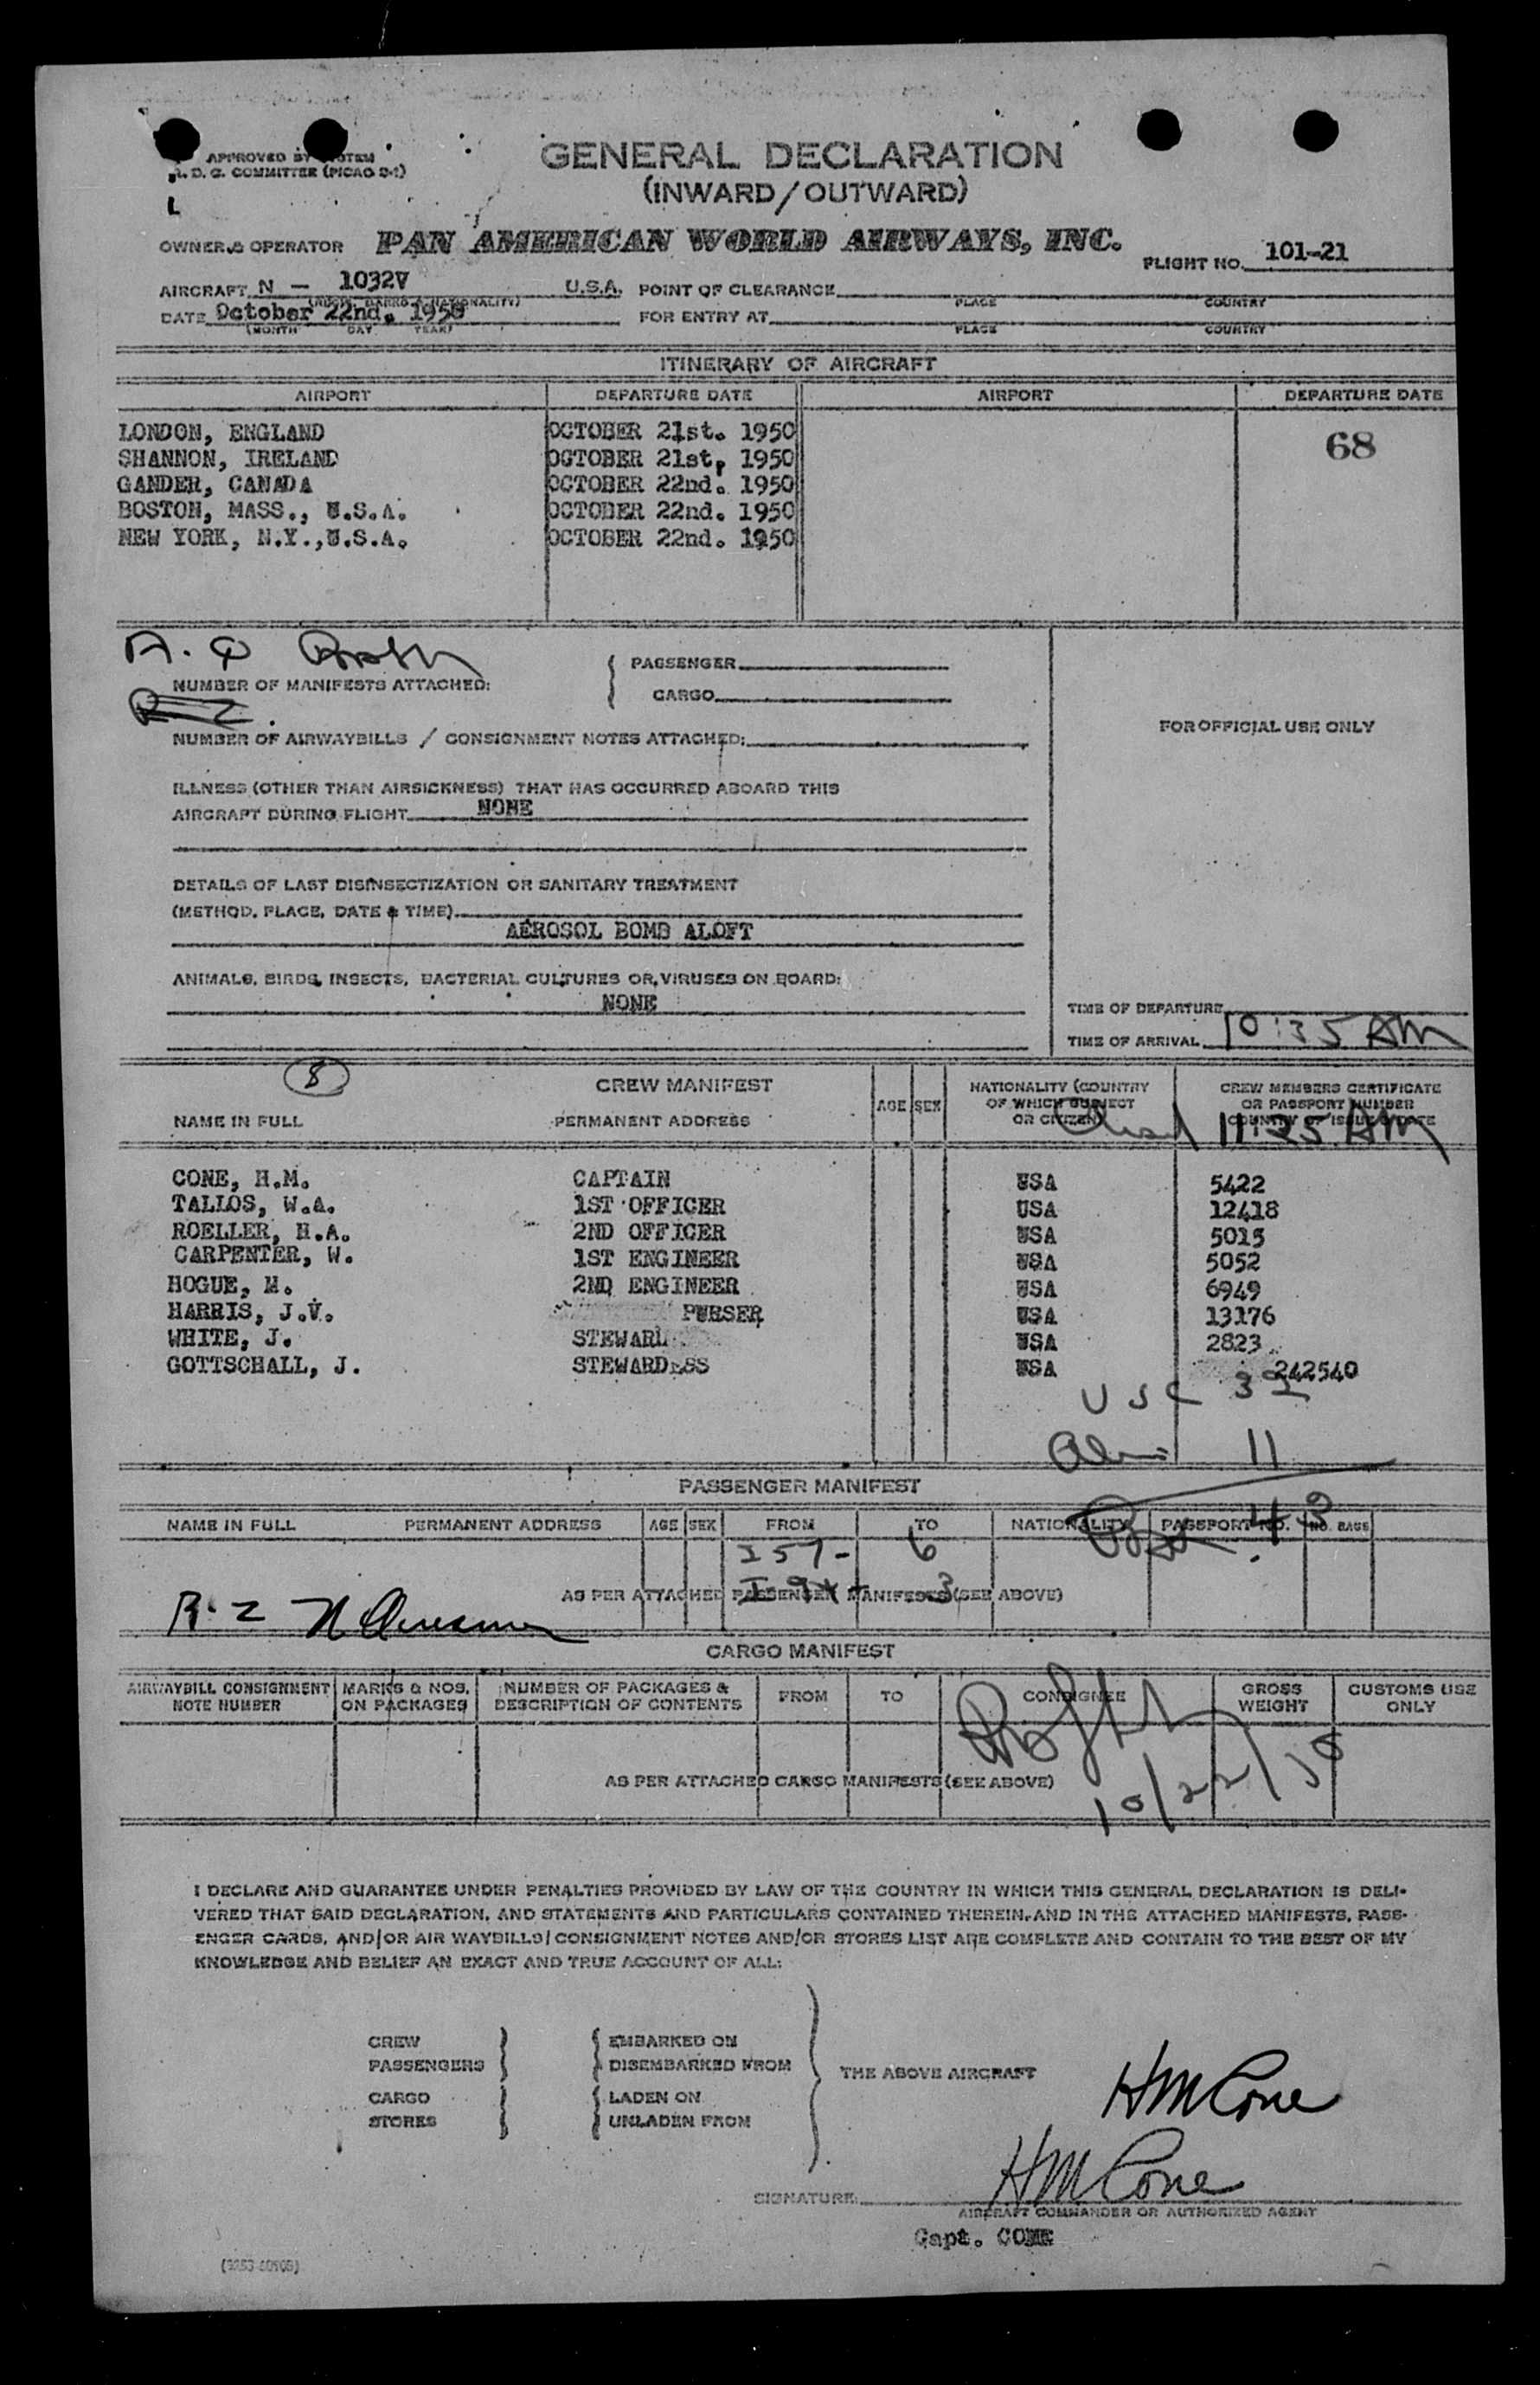 APPROVED BY SYSTEM
D. C. COMMITTEE (PICAO 2-1)
L
GENERAL DECLARATION
(INWARD/OUTWARD)
OWNER & OPERATOR PAN AMERICAN WORLD AIRWAYS, INC.
FLIGHT NO. 101-21
AIRCRAFT N - 1032V U.S.A. POINT OF CLEARANCE
PLACE COUNTRY
DATE October 22nd. 1950 FOR ENTRY AT
(MONTH DAY YEAR) PLACE COUNTRY
ITINERARY OF AIRCRAFT
AIRPORT DEPARTURE DATE AIRPORT DEPARTURE DATE
LONDON, ENGLAND OCTOBER 21st. 1950 68
SHANNON, IRELAND OCTOBER 21st, 1950
GANDER, CANADA OCTOBER 22nd. 1950
BOSTON, MASS., U.S.A. OCTOBER 22nd. 1950
NEW YORK, N.Y.,U.S.A. OCTOBER 22nd. 1950
NUMBER OF MANIFESTS ATTACHED: { PASSENGER
CARGO
NUMBER OF AIRWAYBILLS / CONSIGNMENT NOTES ATTACHED:
FOR OFFICIAL USE ONLY
ILLNESS (OTHER THAN AIRSICKNESS) THAT HAS OCCURRED ABOARD THIS
AIRCRAFT DURING FLIGHT NONE
DETAILS OF LAST DISINSECTIZATION OR SANITARY TREATMENT
(METHOD, PLACE, DATE & TIME)
AEROSOL BOMB ALOFT
ANIMALS, BIRDS, INSECTS, BACTERIAL CULTURES OR VIRUSES ON BOARD:
NONE
TIME OF DEPARTURE
TIME OF ARRIVAL 10:35 AM
8
CREW MANIFEST
NAME IN FULL PERMANENT ADDRESS AGE SEX NATIONALITY (COUNTRY OF WHICH SUBJECT OR CITIZEN) CREW MEMBERS CERTIFICATE OR PASSPORT NUMBER COUNTRY OF ISSUE & DATE
11:25 AM
CONE, H.M. CAPTAIN USA 5422
TALLOS, W.A. 1ST OFFICER USA 12418
ROELLER, H.A. 2ND OFFICER USA 5015
CARPENTER, W. 1ST ENGINEER USA 5052
HOGUE, M. 2ND ENGINEER USA 6949
HARRIS, J.V. PURSER USA 13176
WHITE, J. STEWARD USA 2823
GOTTSCHALL, J. STEWARDESS USA 242540
USC 32
11
43
PASSENGER MANIFEST
NAME IN FULL PERMANENT ADDRESS AGE SEX FROM TO NATIONALITY PASSPORT NO. NO. BAGS
I 57 - 6
AS PER ATTACHED PASSENGER MANIFESTS (SEE ABOVE)
3
CARGO MANIFEST
AIRWAYBILL CONSIGNMENT NOTE NUMBER MARKS & NOS. ON PACKAGES NUMBER OF PACKAGES & DESCRIPTION OF CONTENTS FROM TO CONSIGNEE GROSS WEIGHT CUSTOMS USE ONLY
AS PER ATTACHED CARGO MANIFESTS (SEE ABOVE)
10/22/50
I DECLARE AND GUARANTEE UNDER PENALTIES PROVIDED BY LAW OF THE COUNTRY IN WHICH THIS GENERAL DECLARATION IS DELI-
VERED THAT SAID DECLARATION, AND STATEMENTS AND PARTICULARS CONTAINED THEREIN, AND IN THE ATTACHED MANIFESTS, PASS-
ENGER CARDS, AND/OR AIR WAYBILLS/CONSIGNMENT NOTES AND/OR STORES LIST ARE COMPLETE AND CONTAIN TO THE BEST OF MY
KNOWLEDGE AND BELIEF AN EXACT AND TRUE ACCOUNT OF ALL:
CREW EMBARKED ON
PASSENGERS DISEMBARKED FROM
THE ABOVE AIRCRAFT
CARGO LADEN ON
STORES UNLADEN FROM
HM Cone
SIGNATURE: HM Cone
AIRCRAFT COMMANDER OR AUTHORIZED AGENT
Capt. CONE